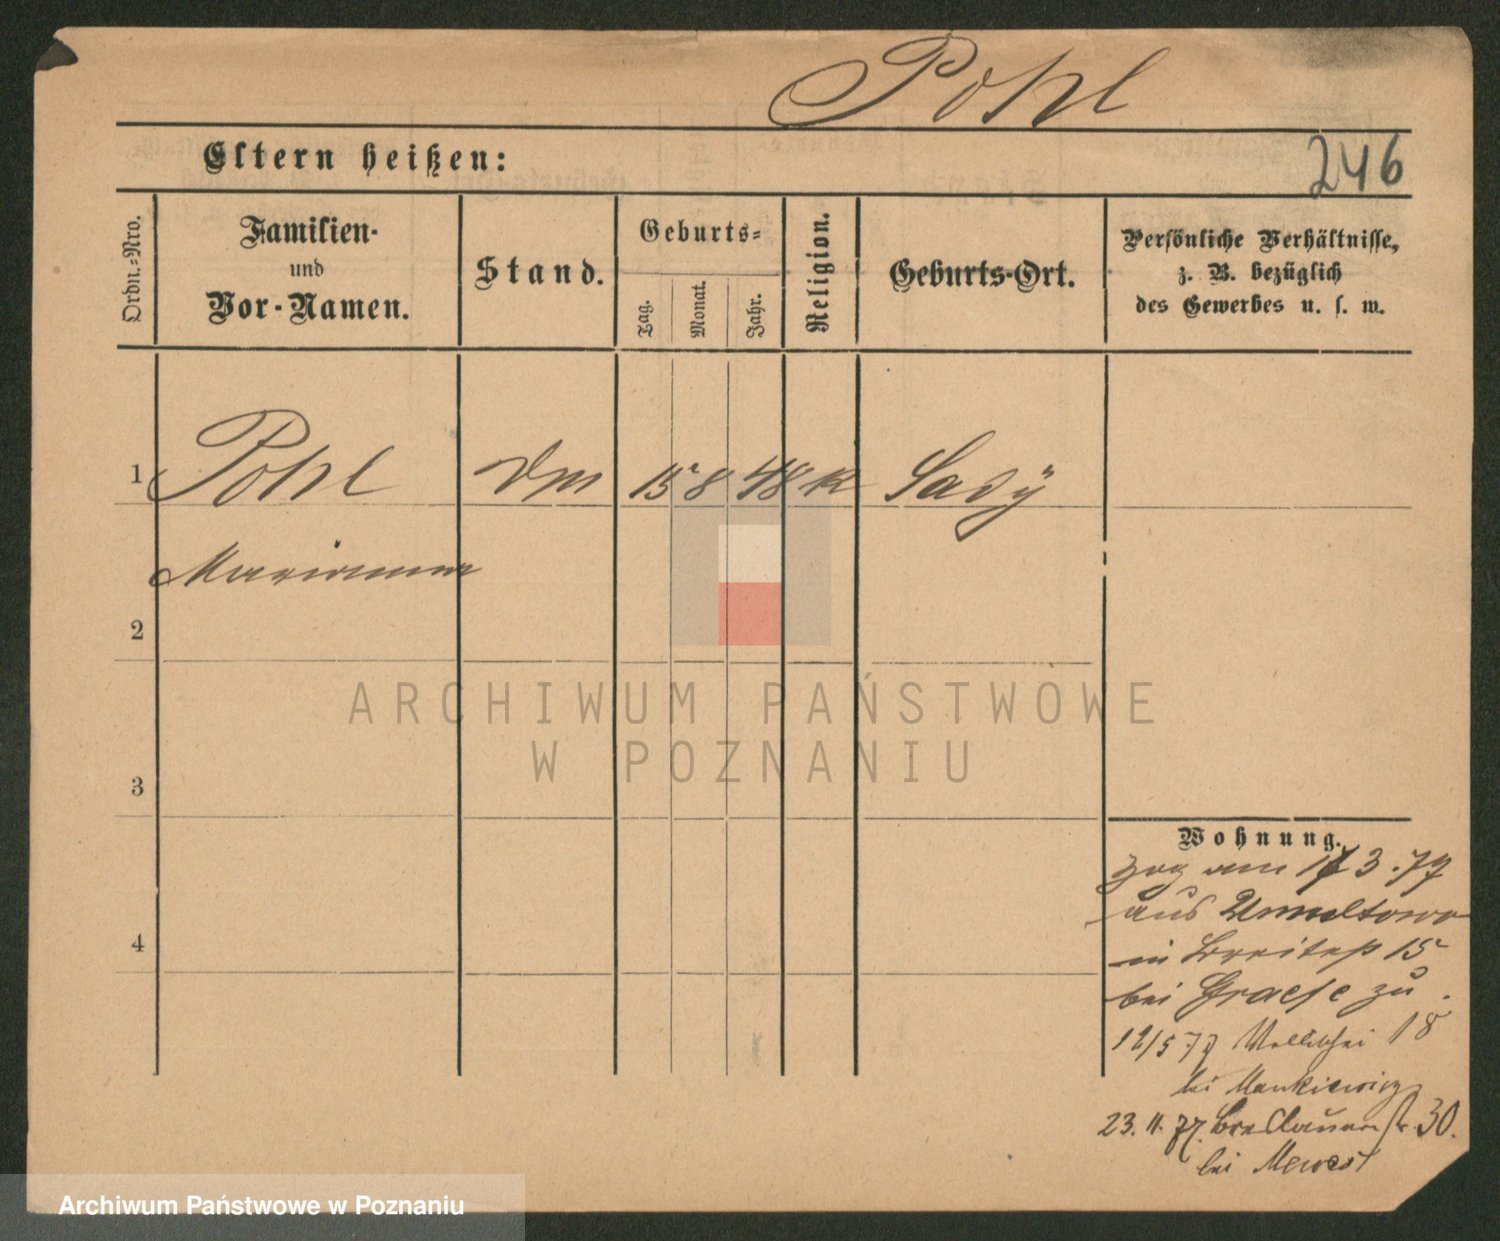 Pohl
Eltern heißen:
246
Ordn.-Nro.
Familien-
und
Vor-Namen.
Stand.
Geburts-
Tag.
Monat.
Jahr.
Religion.
Geburts-Ort.
Persönliche Verhältnisse,
z. B. bezüglich
des Gewerbes u. s. w.
1 Pohl Dm 15 8 48 K Sady
Marianna
2
ARCHIWUM PAŃSTWOWE
W POZNANIU
3
4
Wohnung.
zog am 3.77
aus Umultowo
in Breitestr 15
bei Graefe zu.
12/5 77 18
bei Mankiewicz
23. 11. 77. Breslauerstr. 30.
bei
Archiwum Państwowe w Poznaniu